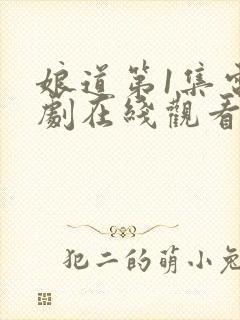 娘道第1集電
劇在綫觀看
犯二的萌小兔